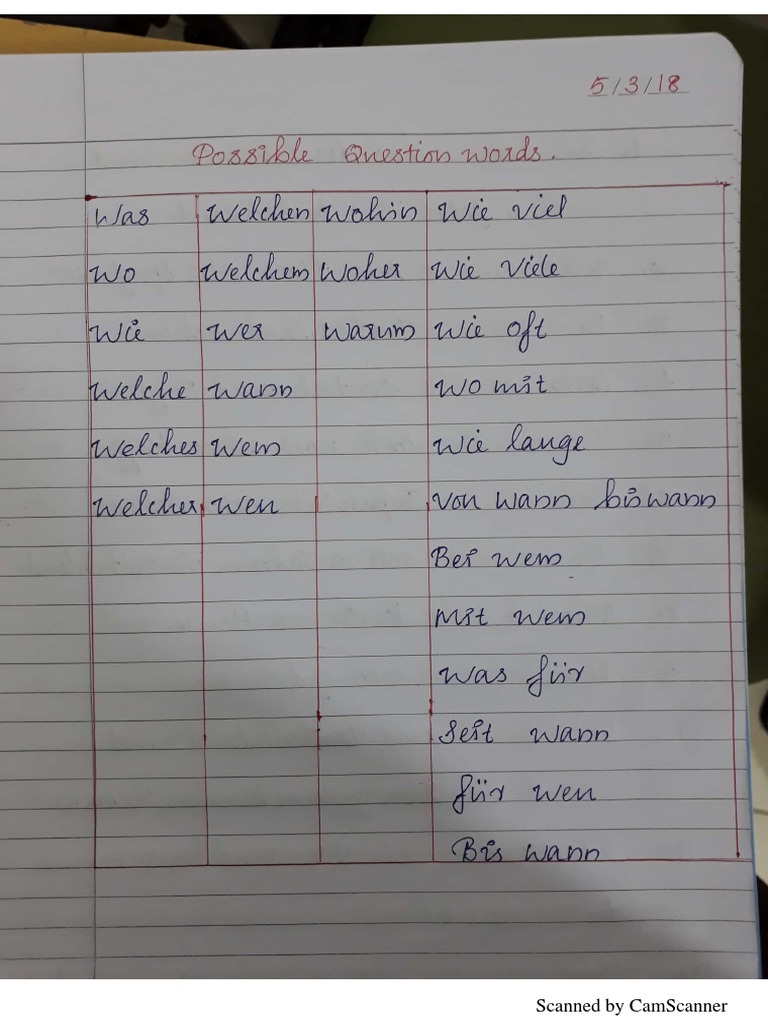 5/3/18
Possible Question words.
Was Welchen Wohin Wie viel
Wo Welchem Woher Wie Viele
Wie Wer Warum Wie oft
Welche Wann Wo mit
Welches Wem Wie lange
Welcher Wen Von wann bis wann
Bei wem
Mit wem
Was für
Seit wann
für wen
Bis wann
Scanned by CamScanner